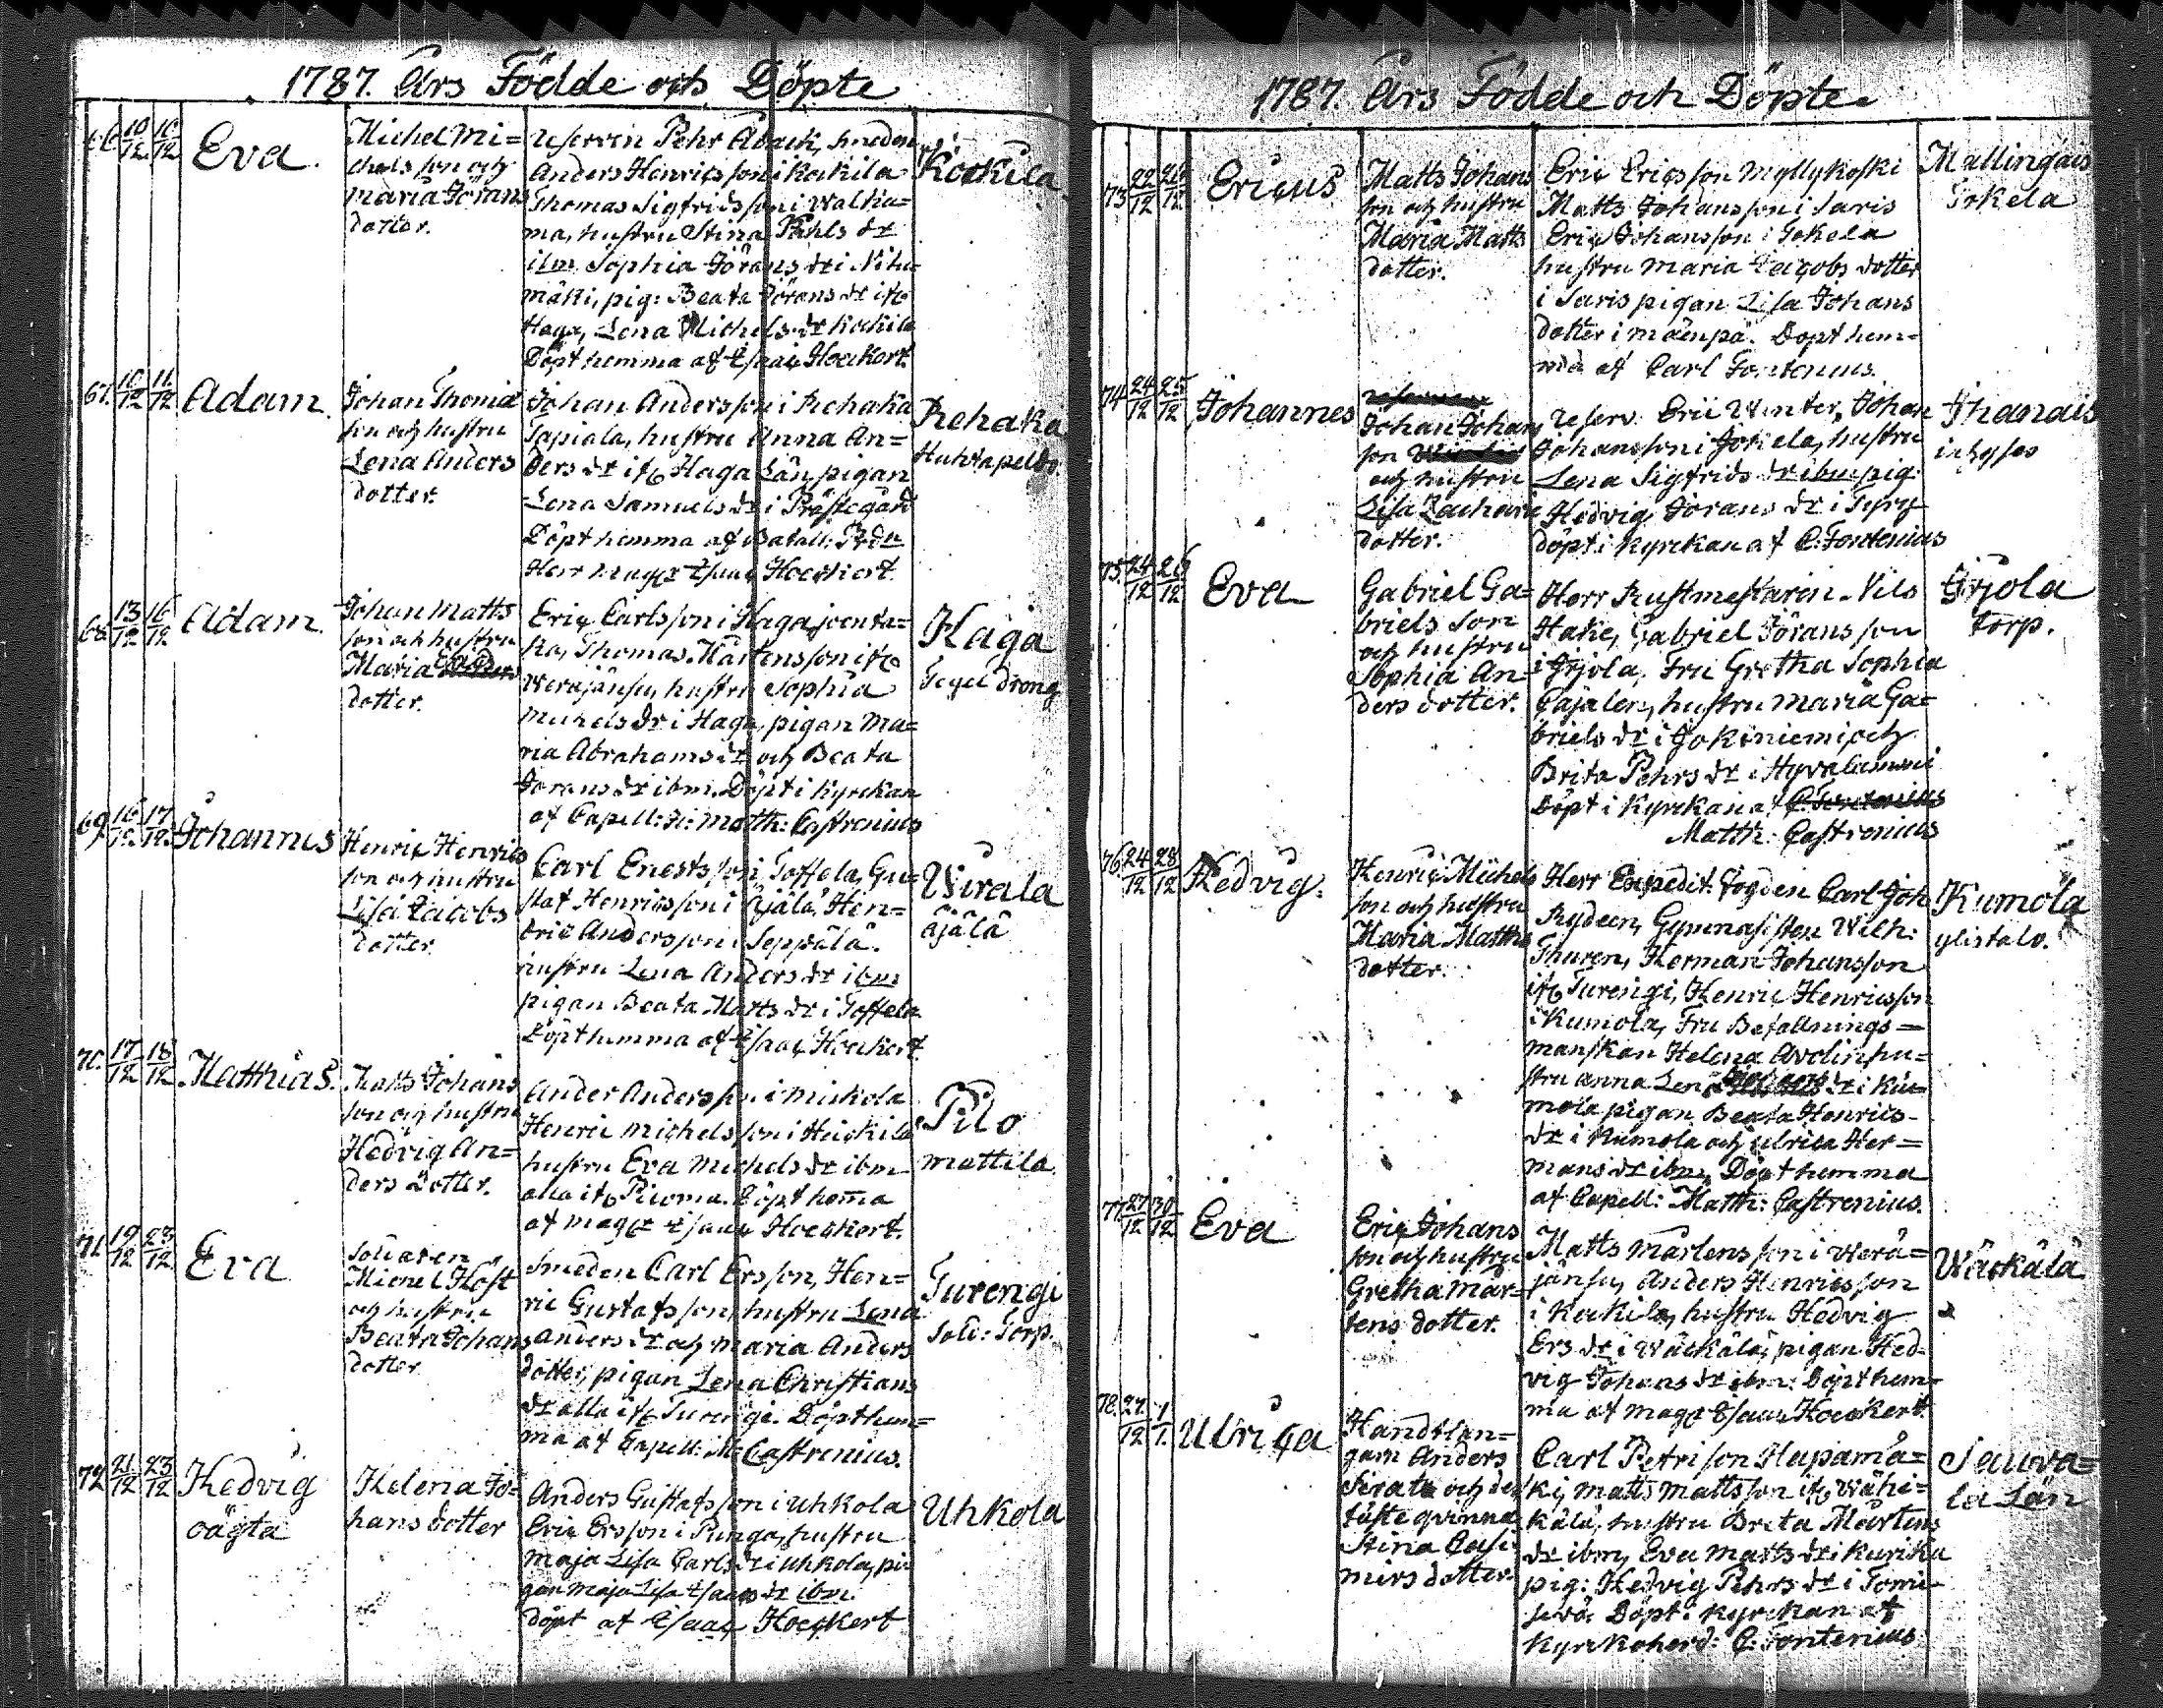 1787. Års Födde och Döpte
66. 10/12 10/12 Eva.
Michel Mi=
chelsson och
Maria Jörans
dotter.
reserven Pehr Aback, smeden
Anders Henricsson i Kockila
Thomas Sigfridsson i Walka=
ma, hustru Stina Påhls dr
ibm Sophia Jörans dr i
mäki, pig: Beata Jörans dr ifr
Haga, Lena Michels dr Kockila
Döpt hemma af Isaac Hoeckert
Kockila
67. 10/12 11/12 Adam.
Johan Thomas
son och hustru
Lena Anders
dotter.
Johan Andersson i Rehaka
Tapiola, hustru Anna An=
ders dr ifr Haga Län pigan
Lena Samuels dr i Prästegård
Döpt hemma af Batall: Pred
Herr Magr Isaac Hoeckert
Rehaka
68. 13/12 16/12 Adam.
Johan Matts
son och hustru
Maria
dotter.
Eric Carlsson i Haga
Thomas Mårtensson ifr
hustru Sophia
Michels dr i Haga, pigan Ma=
ria Abrahams dr och Beata
Jorans dr ibm. Döpt i Kyrckan
af Capell: H: Matth: Castrenius
Haga
69. 16/12 17/12 Johannes
Henric Henrics
son och hustru
Lisa Jacobs
dotter.
Carl Ernestsson i Toffela, Gu=
staf Henricsson i Äjälä, Hen=
dric Andersson i Seppälä.
hustru Lena Anders dr ibm
pigan Beata Matts dr i Toffela
Döpt hemma af Isaac Hoeckert
Wirala
Äjälä
70. 17/12 18/12 Matthias.
Matts Johans
son och hustru
Hedvig An=
ders dotter.
Ander Andersson i Miskola
Henric Michelsson i Heickilä
hustru Eva Michels dr ibm
alla ifr Döpt hema
af Magr Isaac Hoeckert.
Pilo
mattila
71. 19/12 23/12 Eva
Soldaten
Michel Höst
och hustru
Beata Johans
dotter
Smeden Carl Ersson, Hen=
ric Gustafsson, hustru Lena
Anders dr och Maria Anders
dotter, pigan Lena Christians
dr alla ifr Turengi. Döpt hem=
ma af Capell: M: Castrenius.
Turengi
Sold: Torp.
72. 21/12 23/12 Hedvig
oägta
Helena Jo=
hans dotter
Anders Gustafsson i Uhkola
Eric Ersson i Punga, hustru
Maja Lisa Carls dr i Uhkola, pi=
gan Maja Lisa Isaacs dr ibm.
döpt af Isaac Hoeckert
Uhkola
1787. Års Födde och Döpte
73. 22/12 24/12 Ericus
Matts Johans
son och hustru
Maria Matts
dotter.
Eric Ericsson Myllykoski
Matts Johansson i Saris
Eric Johansson i Jokela
hustru Maria Jacobs dotter
i Saris pigan Lisa Johans
dotter i Mämpä. Döpt hem=
ma af Carl Fontenius.
Mallingais
Jokela
74. 24/12 25/12 Johannes
reserven
Johan Johans
son
och hustru
Lisa Zachari
dotter.
reserv: Eric Winter, Johan
Johansson i Jokela, hustru
Lena Sigfrids dr ibm pig.
Hedvig Jorans dr i
döpt i Kyrckan af C: Fontenius
Ihanais
inhyses
75. 24/12 26/12 Eva
Gabriel Ga=
briels son
och hustru
Sophia An=
ders dotter.
Herr Rustmestaren Nils
Hake, Gabriel Jöransson
i Irjola, Fru Gretha Sophia
Cajalen, hustru Maria Ga=
briels dr i Jokiniemi och
Brita Pehrs dr i
Döpt i Kyrckan af C: Fontenius
Matth: Castrenius
Irjola
torp.
76. 24/12 28/12 Hedvig.
Henric Michels
son och hustru
Maria Matths
dotter.
Herr Expedit: Fogden Carl Joh
Rydeen, Gymnasisten Wilh:
Thuren, Herman Johansson
ifr Turengi, Henric Henricsson
i Kumola, Fru Befallnings=
manskan Helena Avelin hu=
stru Anna Lena dr i Ku=
mola pigan Beata Henrics=
dr i Kumola och Ulrica Her=
mans dr ibm, Döpt hemma
af Capell: Matth: Castrenius.
Kumola
ylistalo.
77. 27/12 30/12 Eva
Eric Johans
son och hustru
Gretha Mår=
tens dotter.
Matts Mårtensson i Werä=
jänsu, Anders Henricsson
i Kockila, hustru Hedvig
Ers dr i Wäckälä, pigan Hed=
vig Johans dr ibm: Döpt hem=
ma af Magr Isaac Hoeckert.
Wäckälä
78. 27/12 1/1. Ulrica
Handtlan=
garn Anders
Sirate och des
fäste qvinna
Stina Casi=
mirs dotter.
Carl Petrison Hapamä=
ki, Matts Mattsson ifr Wähi=
kälä, hustru Brita Mårtens
dr ibm, Eva Matts dr i Kurika
pig: Hedvig Pehrs dr i
Döpt i Kyrckan af
Kyrkoherd: C: Fontenius.
Sauva=
la Län